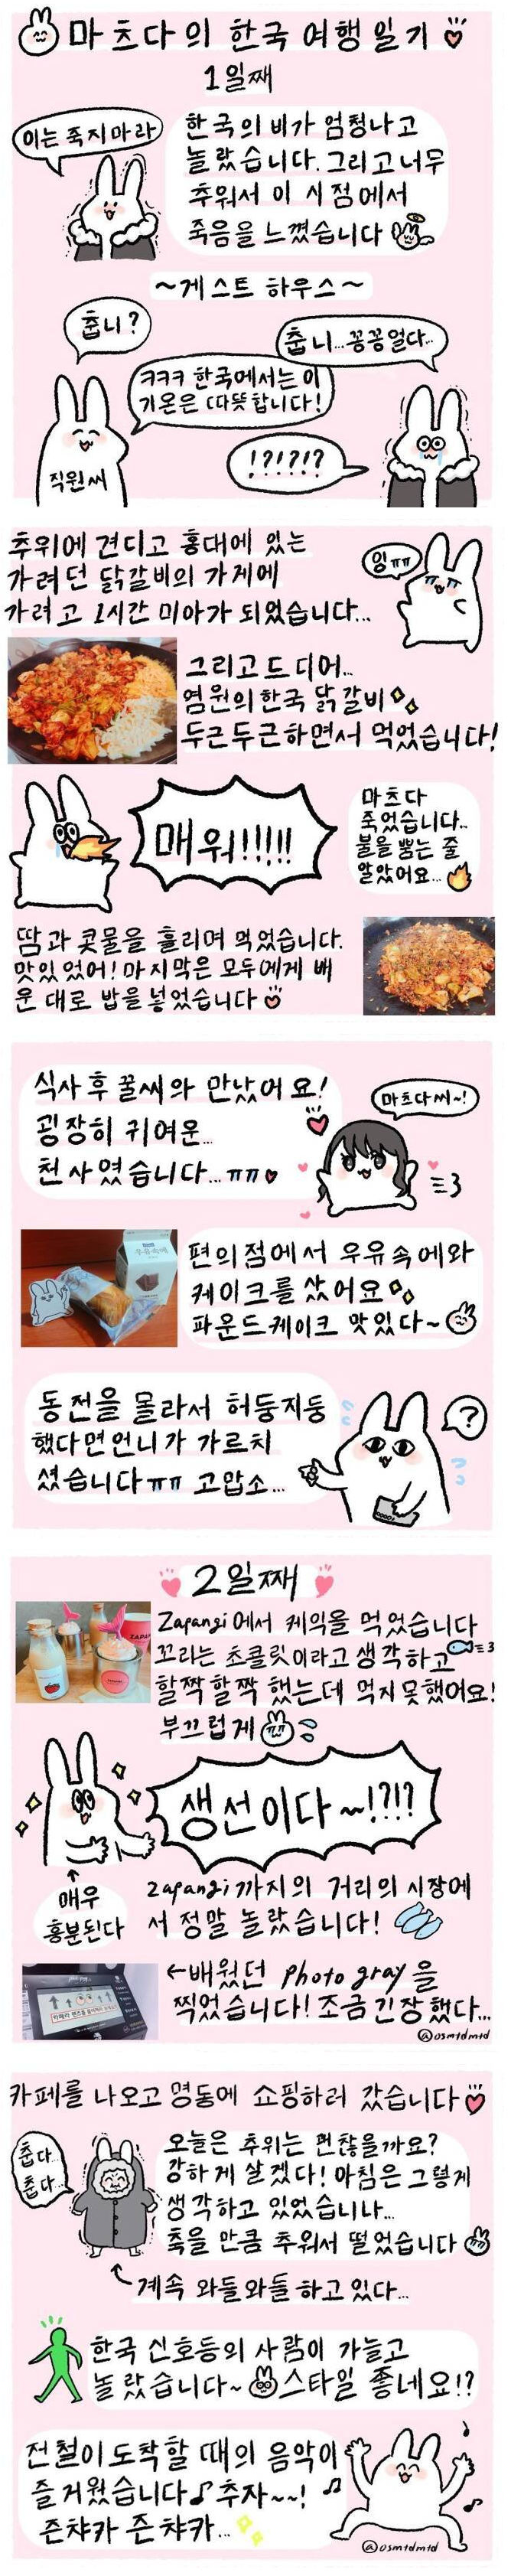 마츠다의 한국 여행일기
1일째
이는 죽지마라
한국의 비가 엄청나고
놀랐습니다. 그리고 너무
추워서 이 시점에서
죽음을 느꼈습니다
~게스트 하우스~
춥니?
춥니...꽁꽁얼다..
ㅋㅋㅋ 한국에서는 이
기온은 따뜻합니다!
!?!?!?
직원씨
추위에 견디고 홍대에 있는
가려던 닭갈비의 가게에
가려고 1시간 미아가 되었습니다...
잉ㅠㅠ
그리고 드디어..
염원의 한국 닭갈비
두근두근하면서 먹었습니다!
매워!!!!!
마츠다
죽었습니다..
불을 뿜는 줄
알았어요...
땀과 콧물을 흘리며 먹었습니다.
맛있었어! 마지막은 모두에게 배
운 대로 밥을 넣었습니다
식사 후 꿀씨와 만났어요!
굉장히 귀여운..
천사였습니다...ㅠㅠ
마츠다씨~!
편의점에서 우유속에와
케이크를 샀어요
파운드케이크 맛있다~
우유속에
동전을 몰라서 허둥지둥
했다면 언니가 가르치
셨습니다ㅠㅠ 고맙소...
?
2일째
Zapangi에서 케익을 먹었습니다
꼬리는 초콜릿이라고 생각하고
할짝할짝 했는데 먹지 못했어요!
부끄럽게
생선이다~!?!?
매우
흥분된다
zapangi까지의 거리의 시장에
서 정말 놀랐습니다!
←배웠던 photo gray을
찍었습니다! 조금 긴장했다...
@osmtdmtd
카페를 나오고 명동에 쇼핑하러 갔습니다
춥다..
춥다..
오늘은 추위는 괜찮을까요?
강하게 살겠다! 아침은 그렇게
생각하고 있었습니나...
죽을 만큼 추워서 떨었습니다
계속 와들와들 하고 있다...
한국 신호등의 사람이 가늘고
놀랐습니다~ 스타일 좋네요!?
전철이 도착할 때의 음악이
즐거웠습니다♪ 추자~~!
즌챠카 즌챠카...
@osmtdmtd